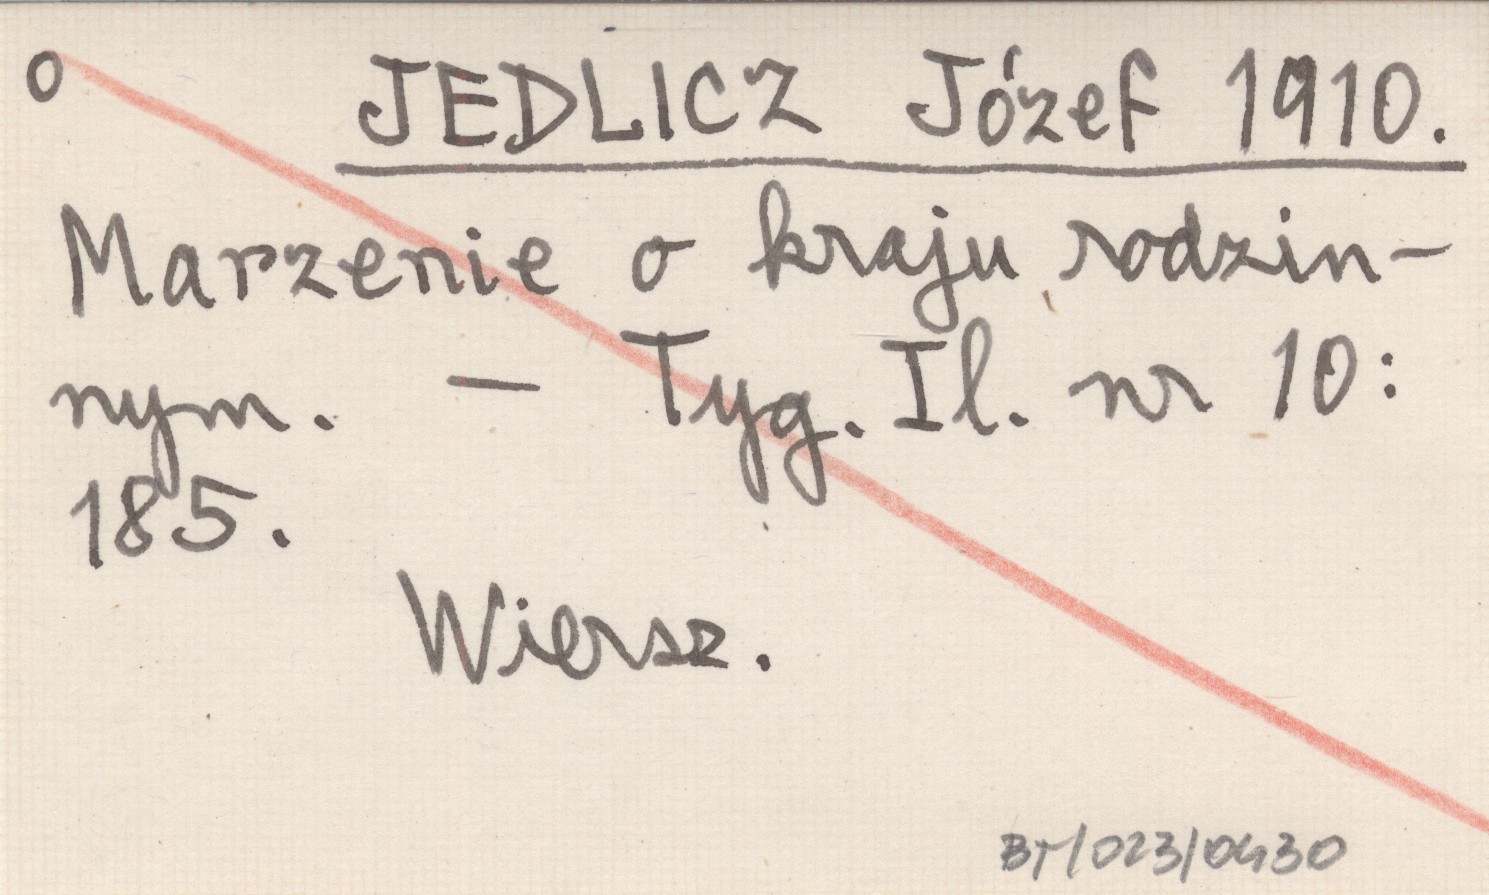 o JEDLICZ Józef 1910.
Marzenie o kraju rodzin-
nym. — Tyg. Il. nr 10:
185.
Wiersz.
BT/023/0430